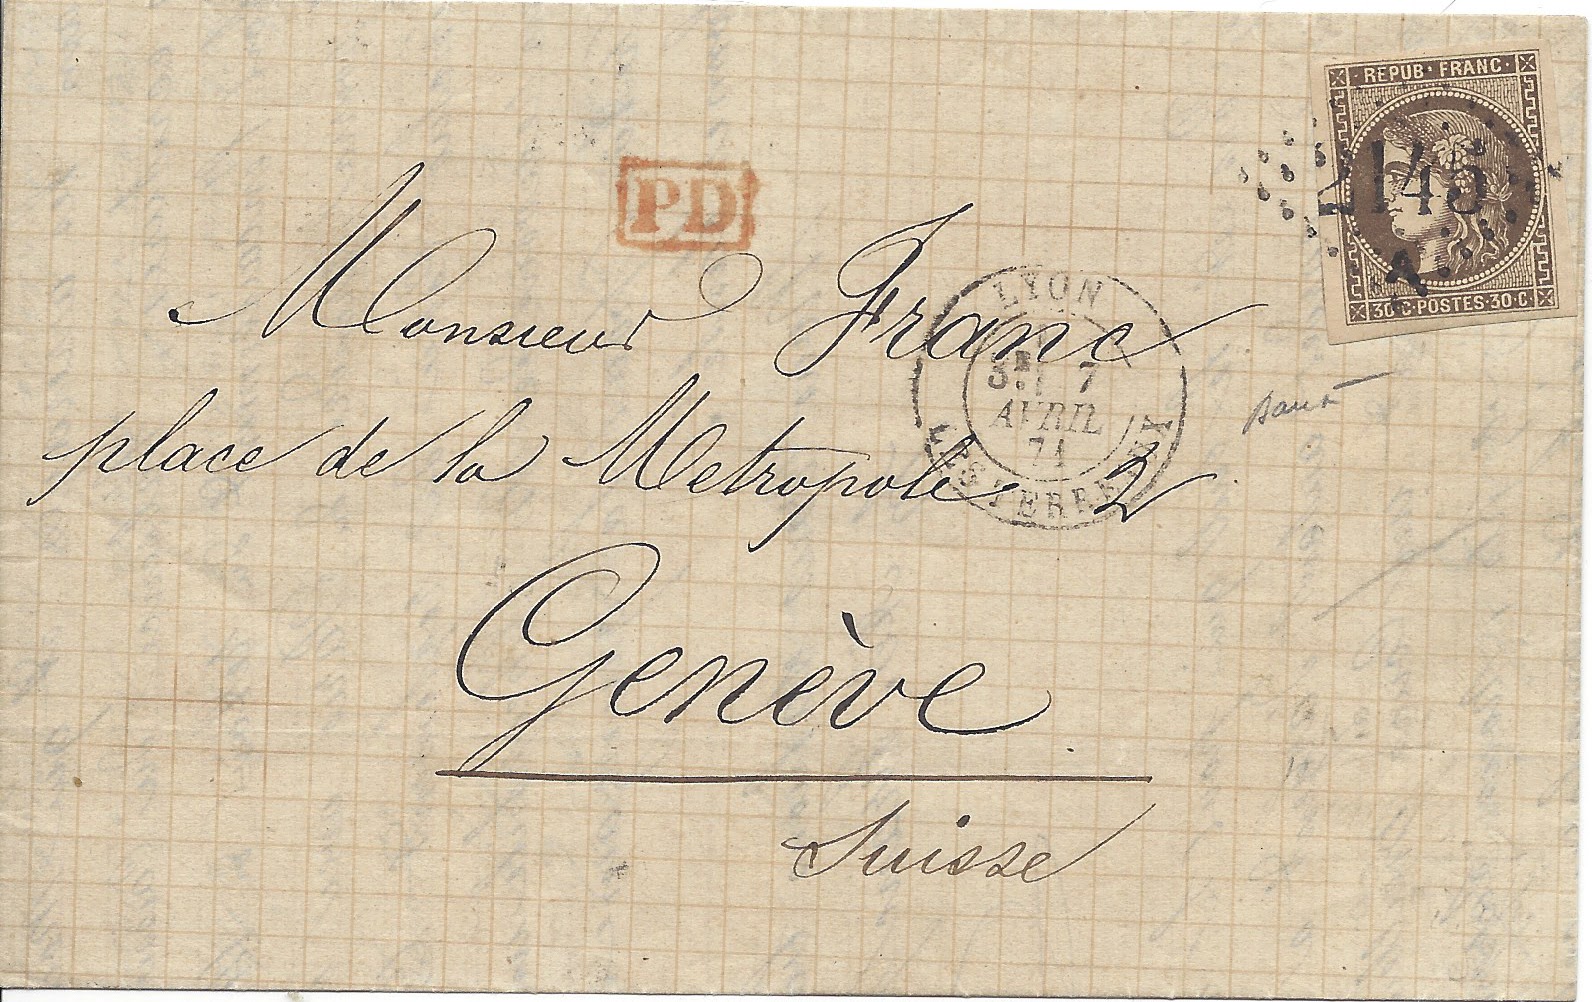 REPUB·FRANC·
2145
A
30·C·POSTES·30·C
PD
Monsieur Franc
place de la Metropole 2
Genève
Suisse
LYON
7
AVRIL
71
LES TERREAUX